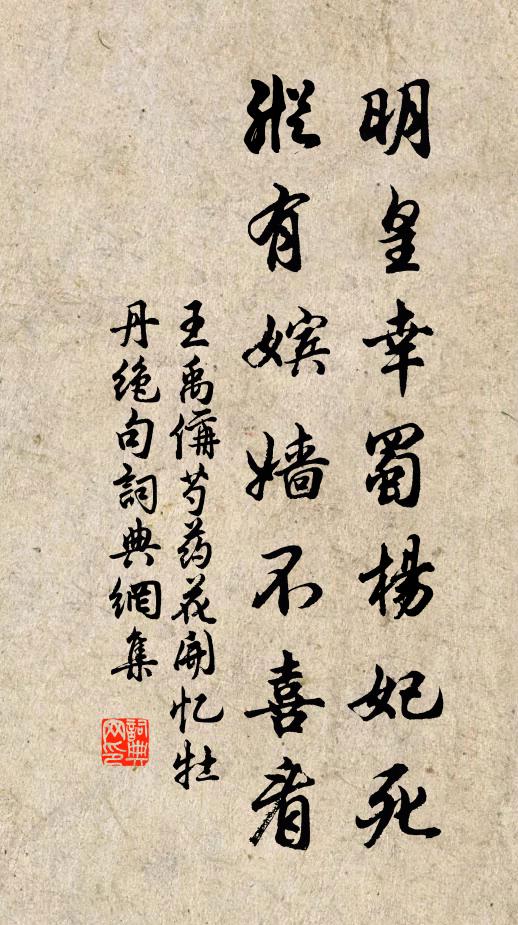 明皇幸蜀楊妃死
縱有嬪嬙不喜看
王禹偁芍药花開忆牡
丹绝句詞典網集
詞典网印